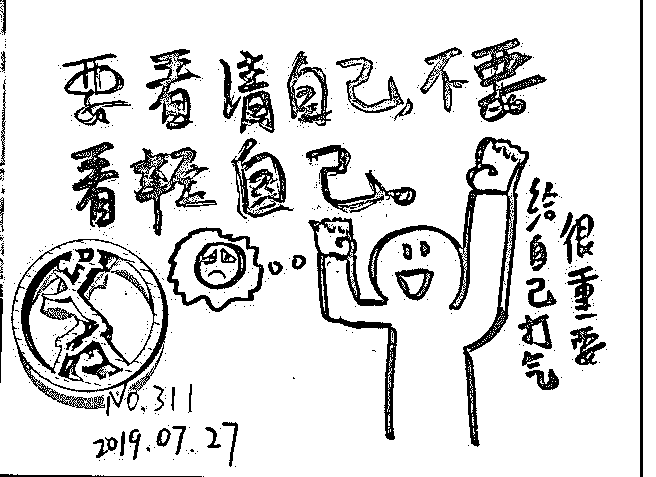 要看清自己,不要
看轻自己。
很重要
给自己打气
NO.311
2019.07.27